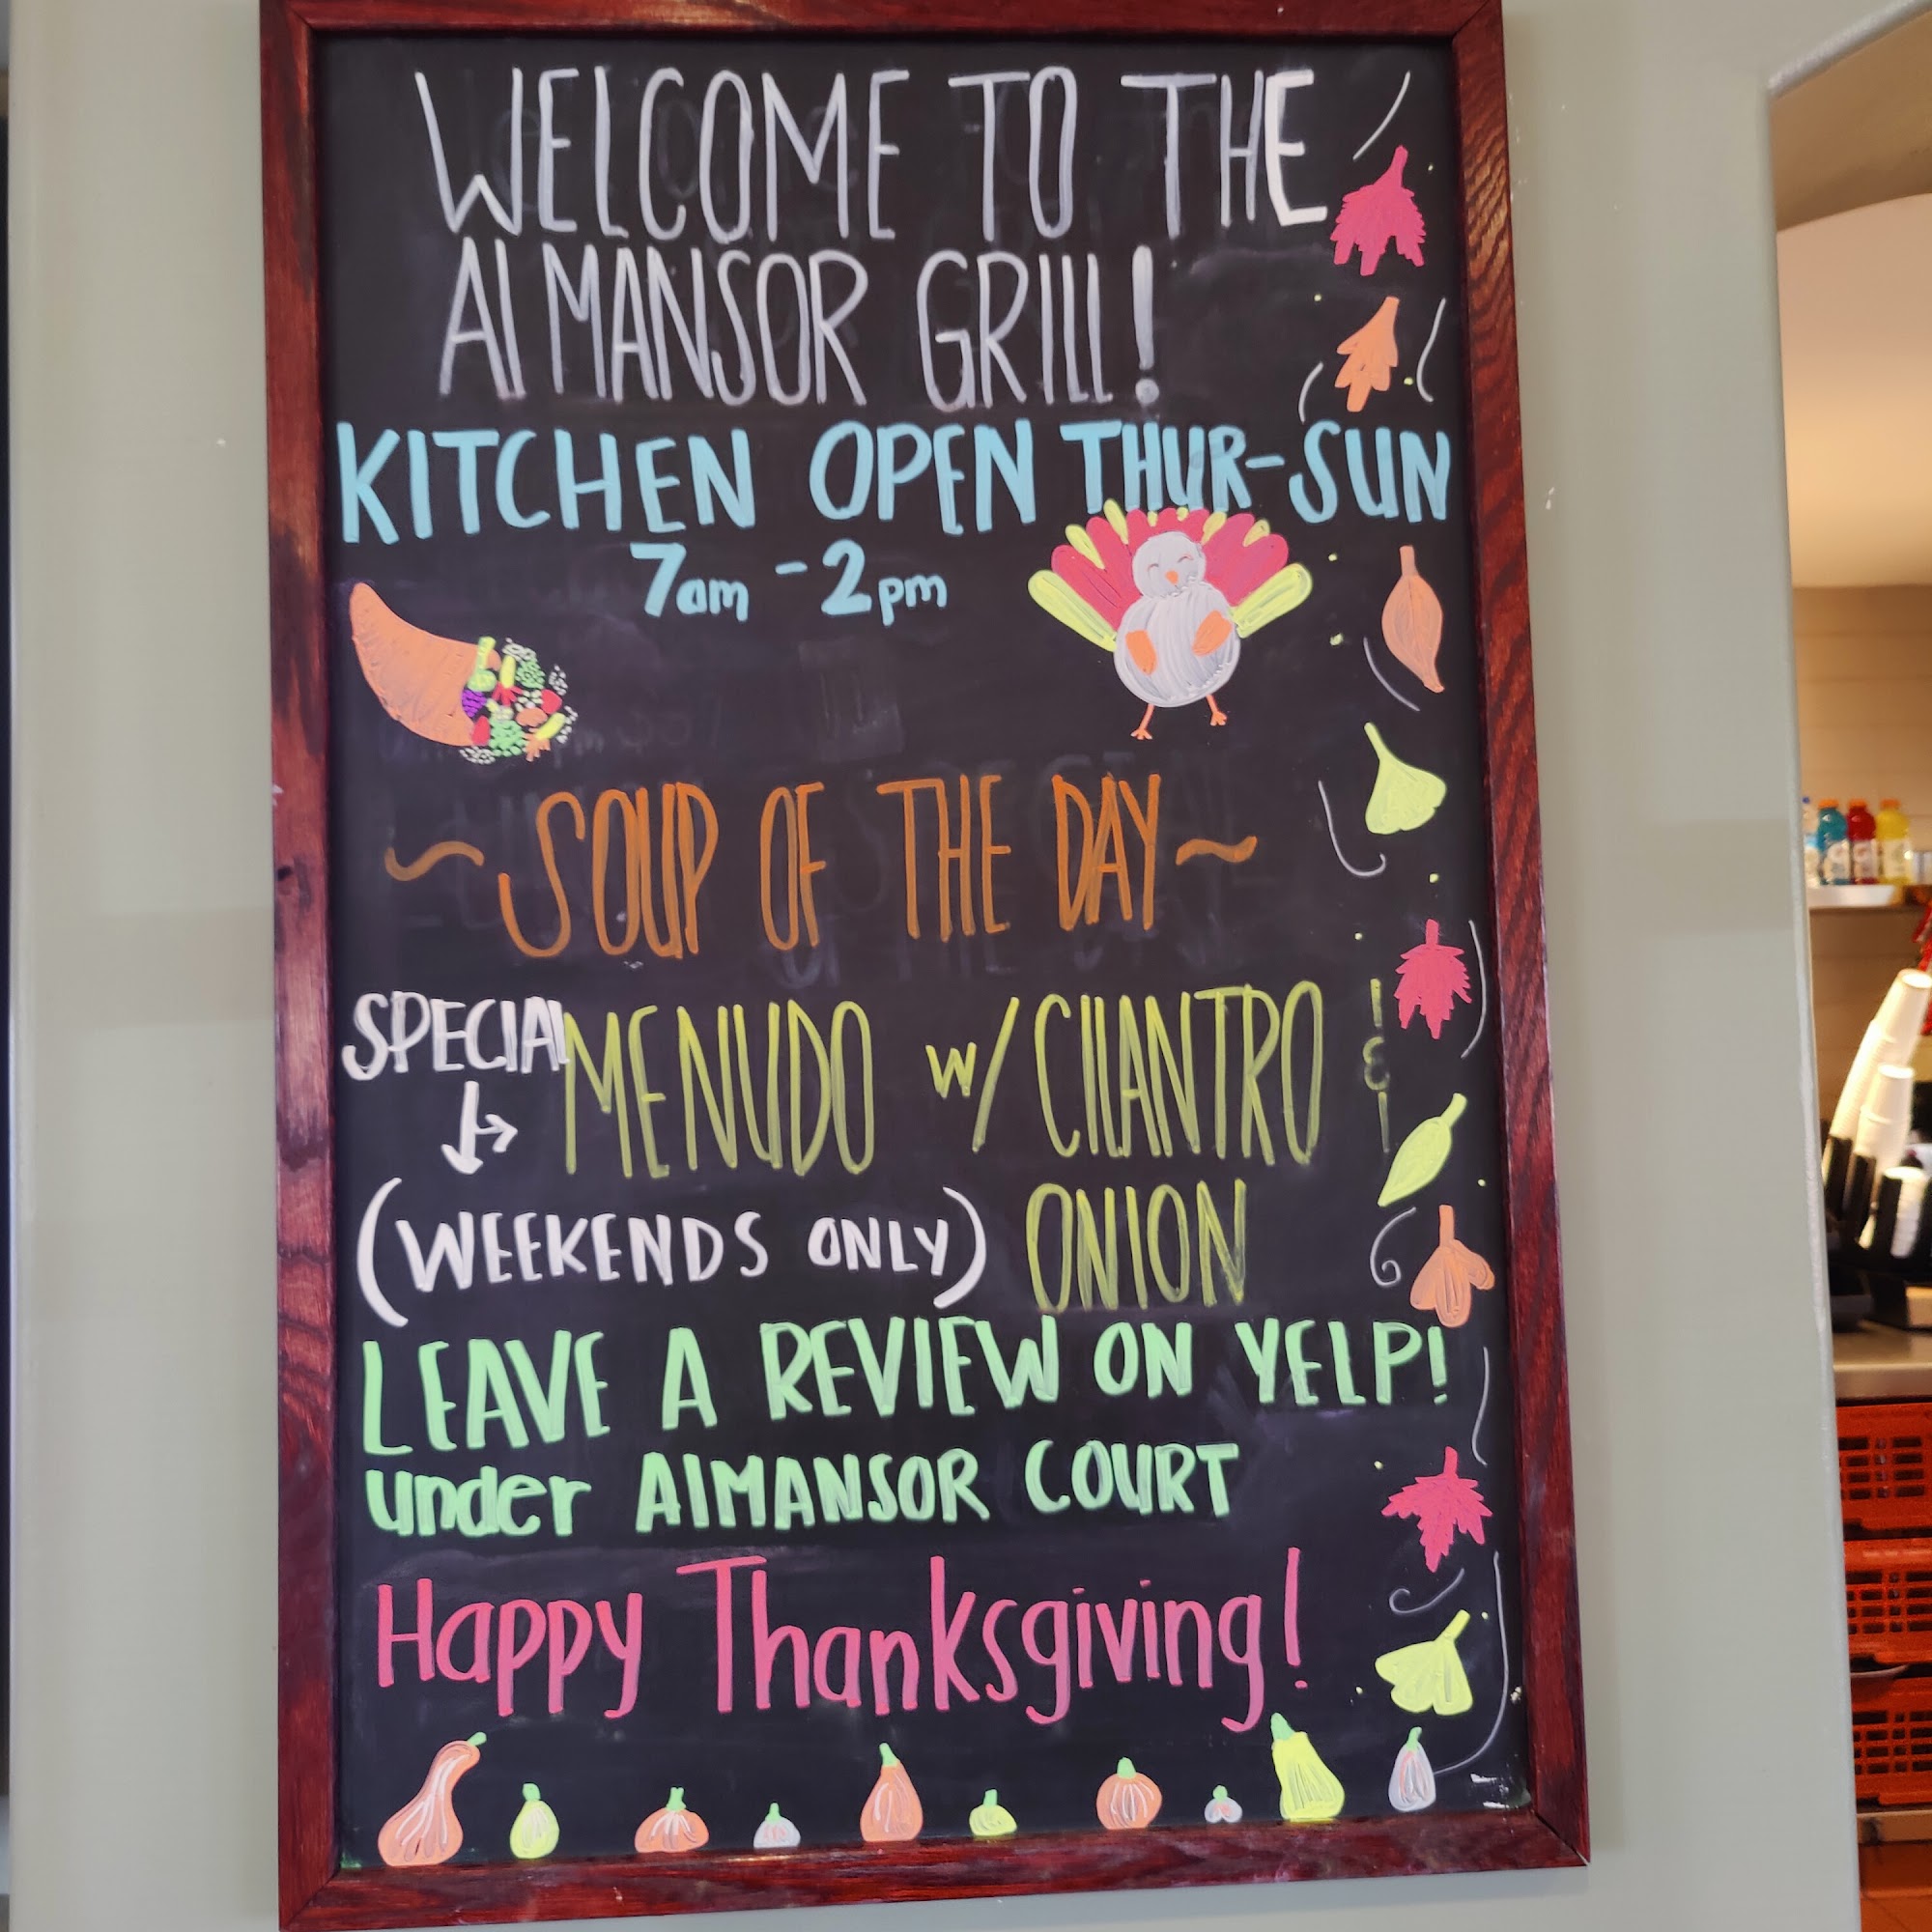 WELCOME TO THE
AlMANSOR GRILL!
KITCHEN OPEN THUR-SUN
7am - 2pm
~ SOUP OF THE DAY ~
SPECIAL MENUDO w/ CILANTRO &
(WEEKENDS ONLY) ONION
LEAVE A REVIEW ON YELP!
under AlMANSOR COURT
Happy Thanksgiving!